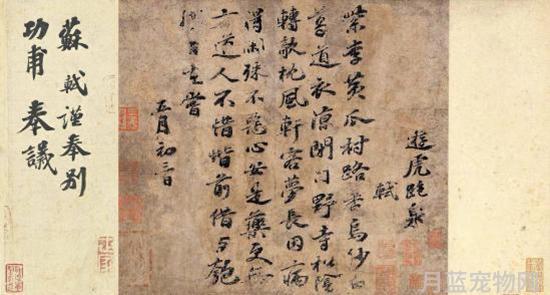 遊虎跑泉
軾
紫李黃瓜村路香烏紗白
葛道衣涼閉門野寺松陰
轉欹枕風軒客夢長因病
得閑殊不惡心安是藥更無
方道人不惜階前借与匏
自在嘗
五月初
蘇軾謹奉別
功甫奉議
月蓝宠物网